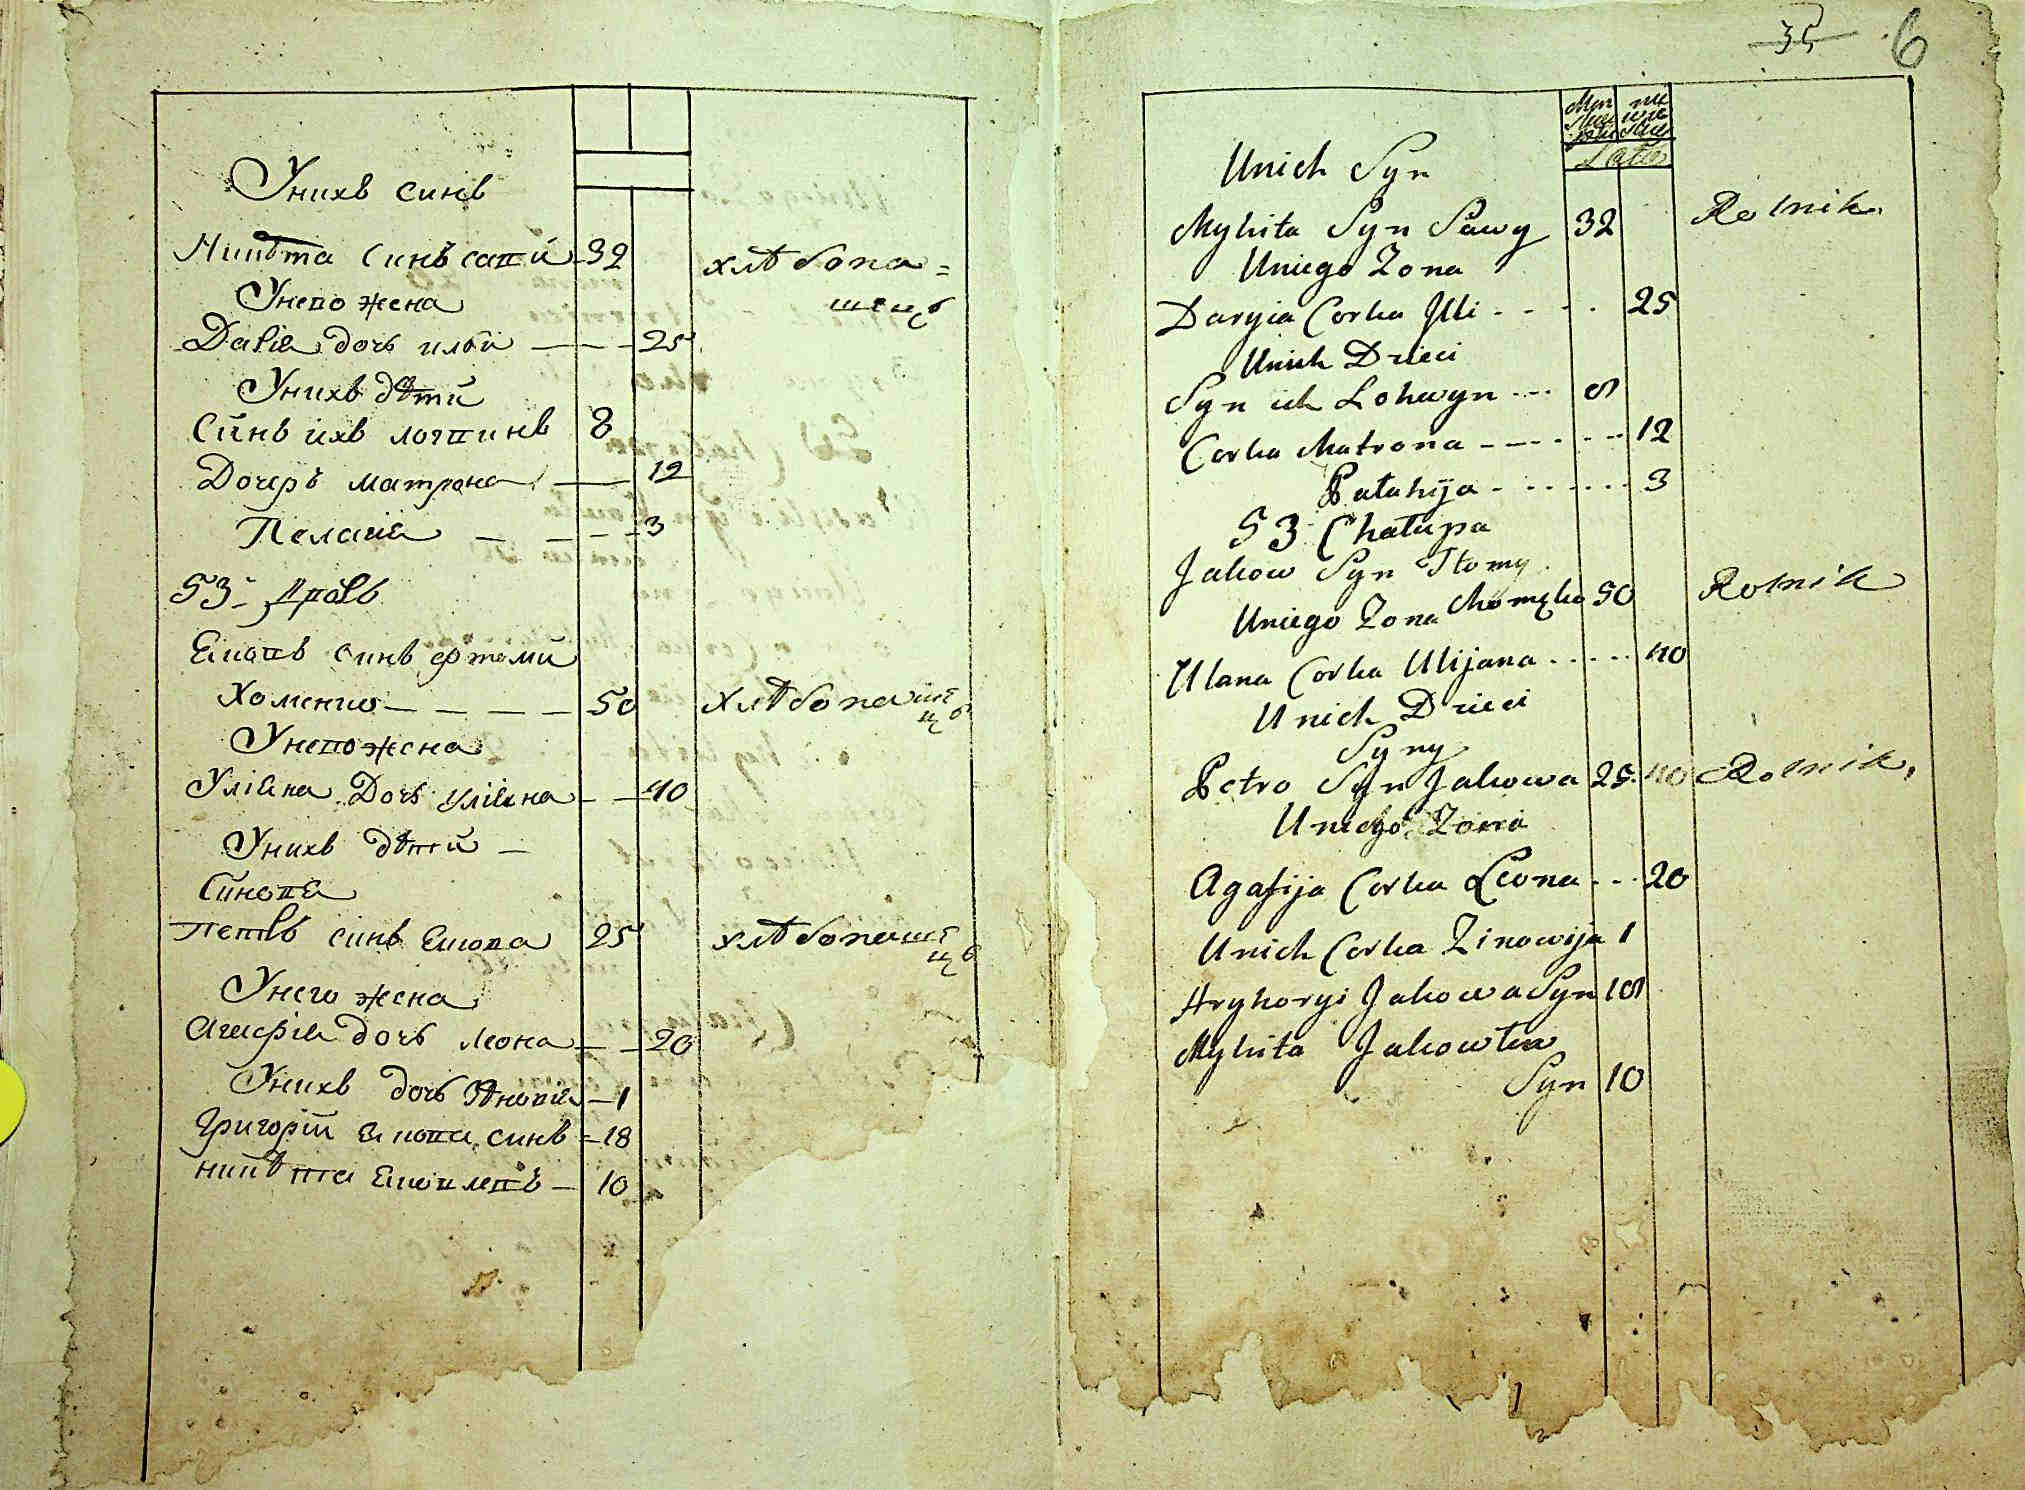 Унихъ синъ
Никѣта Синъ савй 32 хлѣбопа=
Унего жена шецъ
Даріа дочъ илій 25
Унихъ дѣти
Синъ ихъ логвинъ 8
Дочеръ матрона 12
Пелагіа 3
53. Дворъ
Еіаковъ синъ фтоми
Хоменко 50 хлѣбопаше
цъ
Унего жена
Уліана Дочъ уліяна 40
Унихъ дѣтй
Синова
петръ синъ Еіакова 25 хлѣбопаше
цъ
Унего жена
Агафіа дочъ леона 20
Унихъ дочъ Зѣновіа 1
Григорій Еіакова синъ 18
никѣта 10
35 6
Lata
Unich Syn
Mykita Syn Sawy 32 Rolnik
Uniego Zona
Daryia Corka Illi 25
Unich Dzieci
Syn ich Lohwyn 8
Corka Matrona 12
Palahija 3
53 Chatupa
Jakow Syn Ftomy
Chomęko 50 Rolnik
Uniego Zona
Ulana Corka Ulijana 40
Unich Dzieci
Syny
Petro Syn Jakowa 25 40 Rolnik
Uniego Zona
Agafija Corka Leona 20
Unich Corka Zinowija 1
Hryhoryi Jakowa Syn 18
Mykita Jakowlew
Syn 10